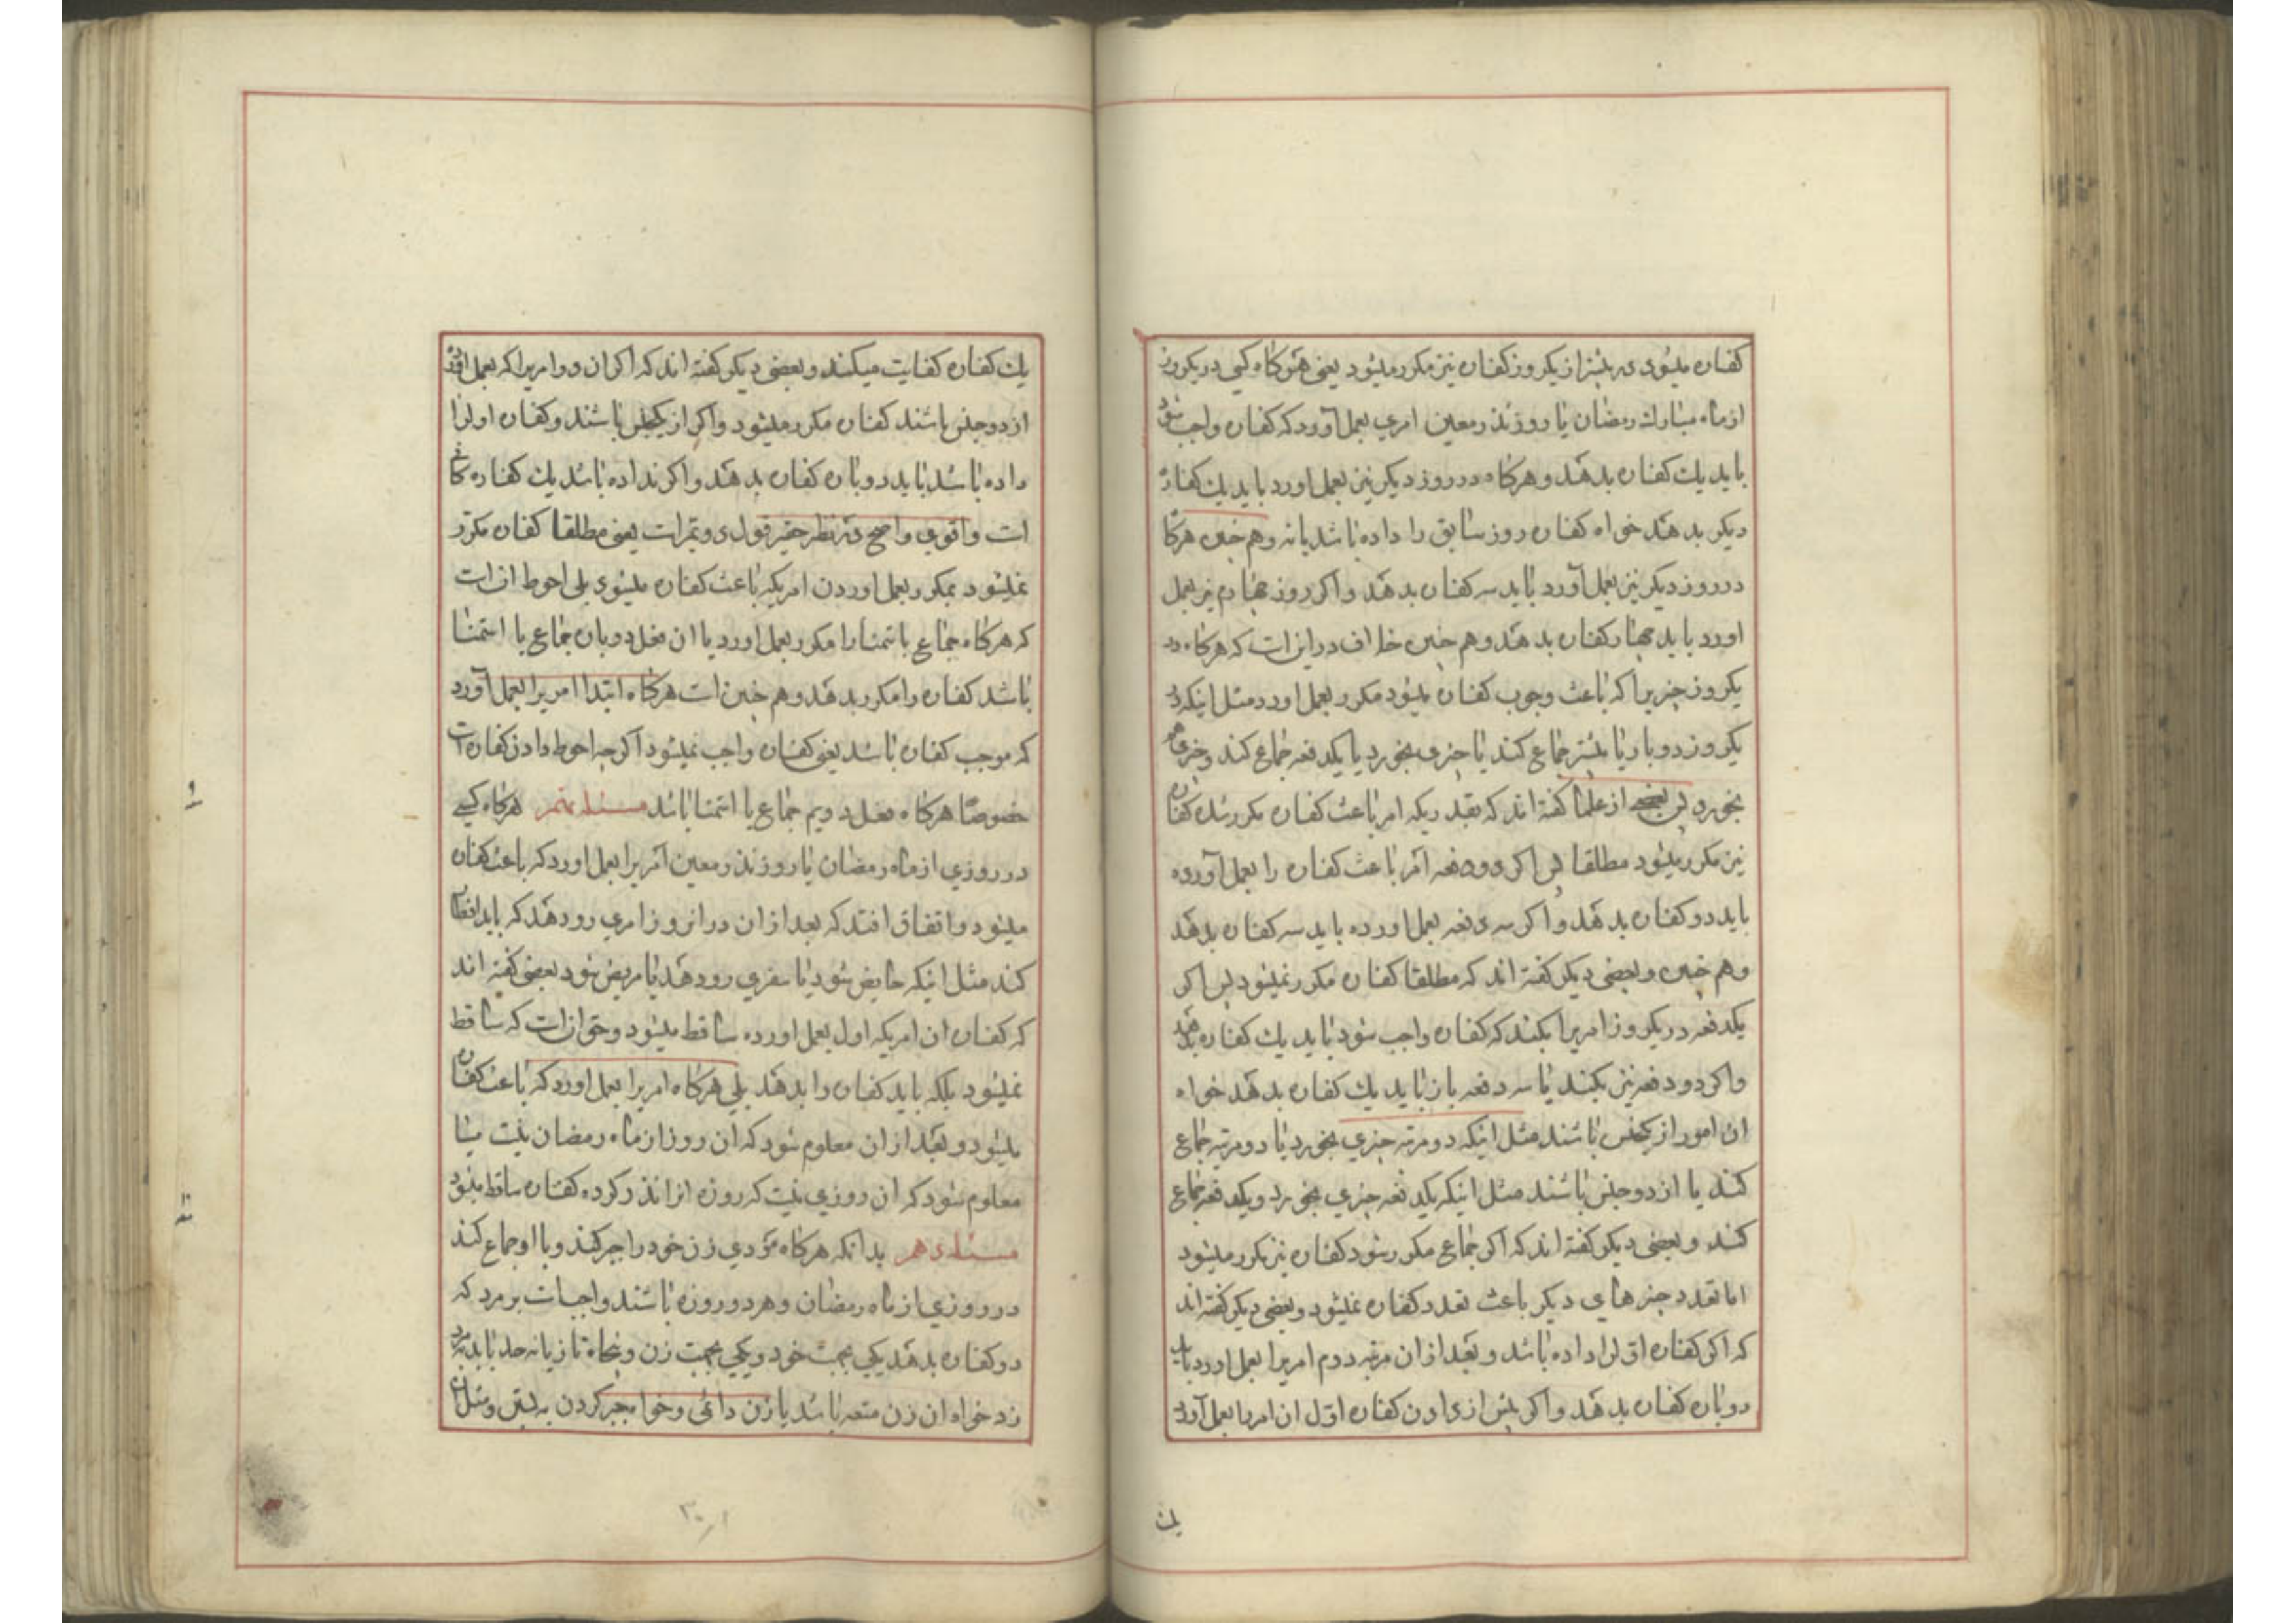 کفاره میشود در بیشتر از یکروز کفاره نیز مکرر میشود یعنی هرکاه کسی در یکروز
از ماه مبارك رمضان یا روز نذر معین امری بعمل آورد که کفاره واجب شود
باید یك کفاره بدهد و هرکاه در روز دیکر نیز بعمل اورد باید یك کفاره
دیکر بدهد خواه کفاره روز سابق را داده باشد یا نه و هم چنین هرکاه
در روز دیکر نیز بعمل آورد باید سه کفاره بدهد و اکر روز چهارم نیز بعمل
اورد باید چهار کفاره بدهد و هم چنین خلاف در این است که هرکاه در
یکروز چیزیرا که باعث وجوب کفاره میشود مکرر بعمل اورد مثل اینکه در
یکروز دو بار یا بیشتر جماع کند یا چیزی بخورد یا یکدفعه جماع کند و چیزی هم
بخورد پس بعضی از علما کفته اند که بقدریکه امر باعث کفاره مکرر شده کفاره
نیز مکرر میشود مطلقا پس اکر دو دفعه امر باعث کفاره را بعمل آورده
باید دو کفاره بدهد و اکر سه دفعه بعمل اورده باید سه کفاره بدهد
و هم چنین و بعضی دیکر کفته اند که مطلقا کفاره مکرر نمیشود پس اکر
یکدفعه در یکروز امریرا بکند که کفاره واجب شود باید یك کفاره بدهد
و اکر دو دفعه نیز بکند یا سه دفعه باز باید یك کفاره بدهد خواه
ان امور از یکجنس باشند مثل اینکه دو مرتبه چیزی بخورد یا دو مرتبه جماع
کند یا از دو جنس باشند مثل اینکه یکدفعه چیزی بخورد و یکدفعه جماع
کند و بعضی دیکر کفته اند که اکر جماع مکرر شود کفاره نیز مکرر میشود
اما تعدد چیزهای دیکر باعث تعدد کفاره نمیشود و بعضی دیکر کفته اند
که اکر کفاره اول را داده باشد و بعد از ان مرتبه دوم امریرا بعمل اورد باید
دوباره کفاره بدهد و اکر پیش از دادن کفاره اول ان امر را بعمل آورد
یك
یك کفاره کفایت میکند و بعضی دیکر کفته اند که اکر ان دو امریرا که بعمل اورده
از دو جنس باشند کفاره مکرر میشود و اکر از یکجنس باشند و کفاره اول را
داده باشد باید دوباره کفاره بدهد و اکر نداده باشد یك کفاره کافی
است و اقوی و اصح در نظر حقیر قول دویم است یعنی مطلقا کفاره مکرر
نمیشود بمکرر بعمل اوردن امریکه باعث کفاره میشود بلی احوط ان است
که هرکاه جماع یا استمنا را مکرر بعمل اورد یا ان فعل دوباره جماع یا استمنا
باشد کفاره را مکرر بدهد و هم چنین است هرکاه ابتدا امریرا بعمل آورد
که موجب کفاره باشد یعنی کفاره واجب نمیشود اکرچه احوط دادن کفاره است
خصوصا هرکاه فعل دویم جماع یا استمنا باشد مسئله نهم هرکاه کسی
در روزی از ماه رمضان یا روز نذر معین امریرا بعمل اورد که باعث کفاره
میشود و اتفاق افتد که بعد از ان در انروز امری رو دهد که باید افطار
کند مثل اینکه حایض شود یا سفری رو دهد یا مریض شود بعضی کفته اند
که کفاره ان امریکه اول بعمل اورده ساقط میشود و حق ان است که ساقط
نمیشود بلکه باید کفاره را بدهد بلی هرکاه امریرا بعمل اورد که باعث کفاره
میشود و بعد از ان معلوم شود که ان روز از ماه رمضان نیست یا
معلوم شود که ان روزی نیست که روزه انرا نذر کرده کفاره ساقط میشود
مسئله دهم بدانکه هرکاه مردی زن خود را جبر کند و با او جماع کند
در روزی از ماه رمضان و هر دو روزه باشند واجب است بر مرد که
دو کفاره بدهد یکی بجهت خود و یکی بجهت زن و پنجاه تازیانه حد باید بمرد
زد خواه ان زن متعه باشد یا زن دائمی و خواه جبر کردن به بستن و مثل ان